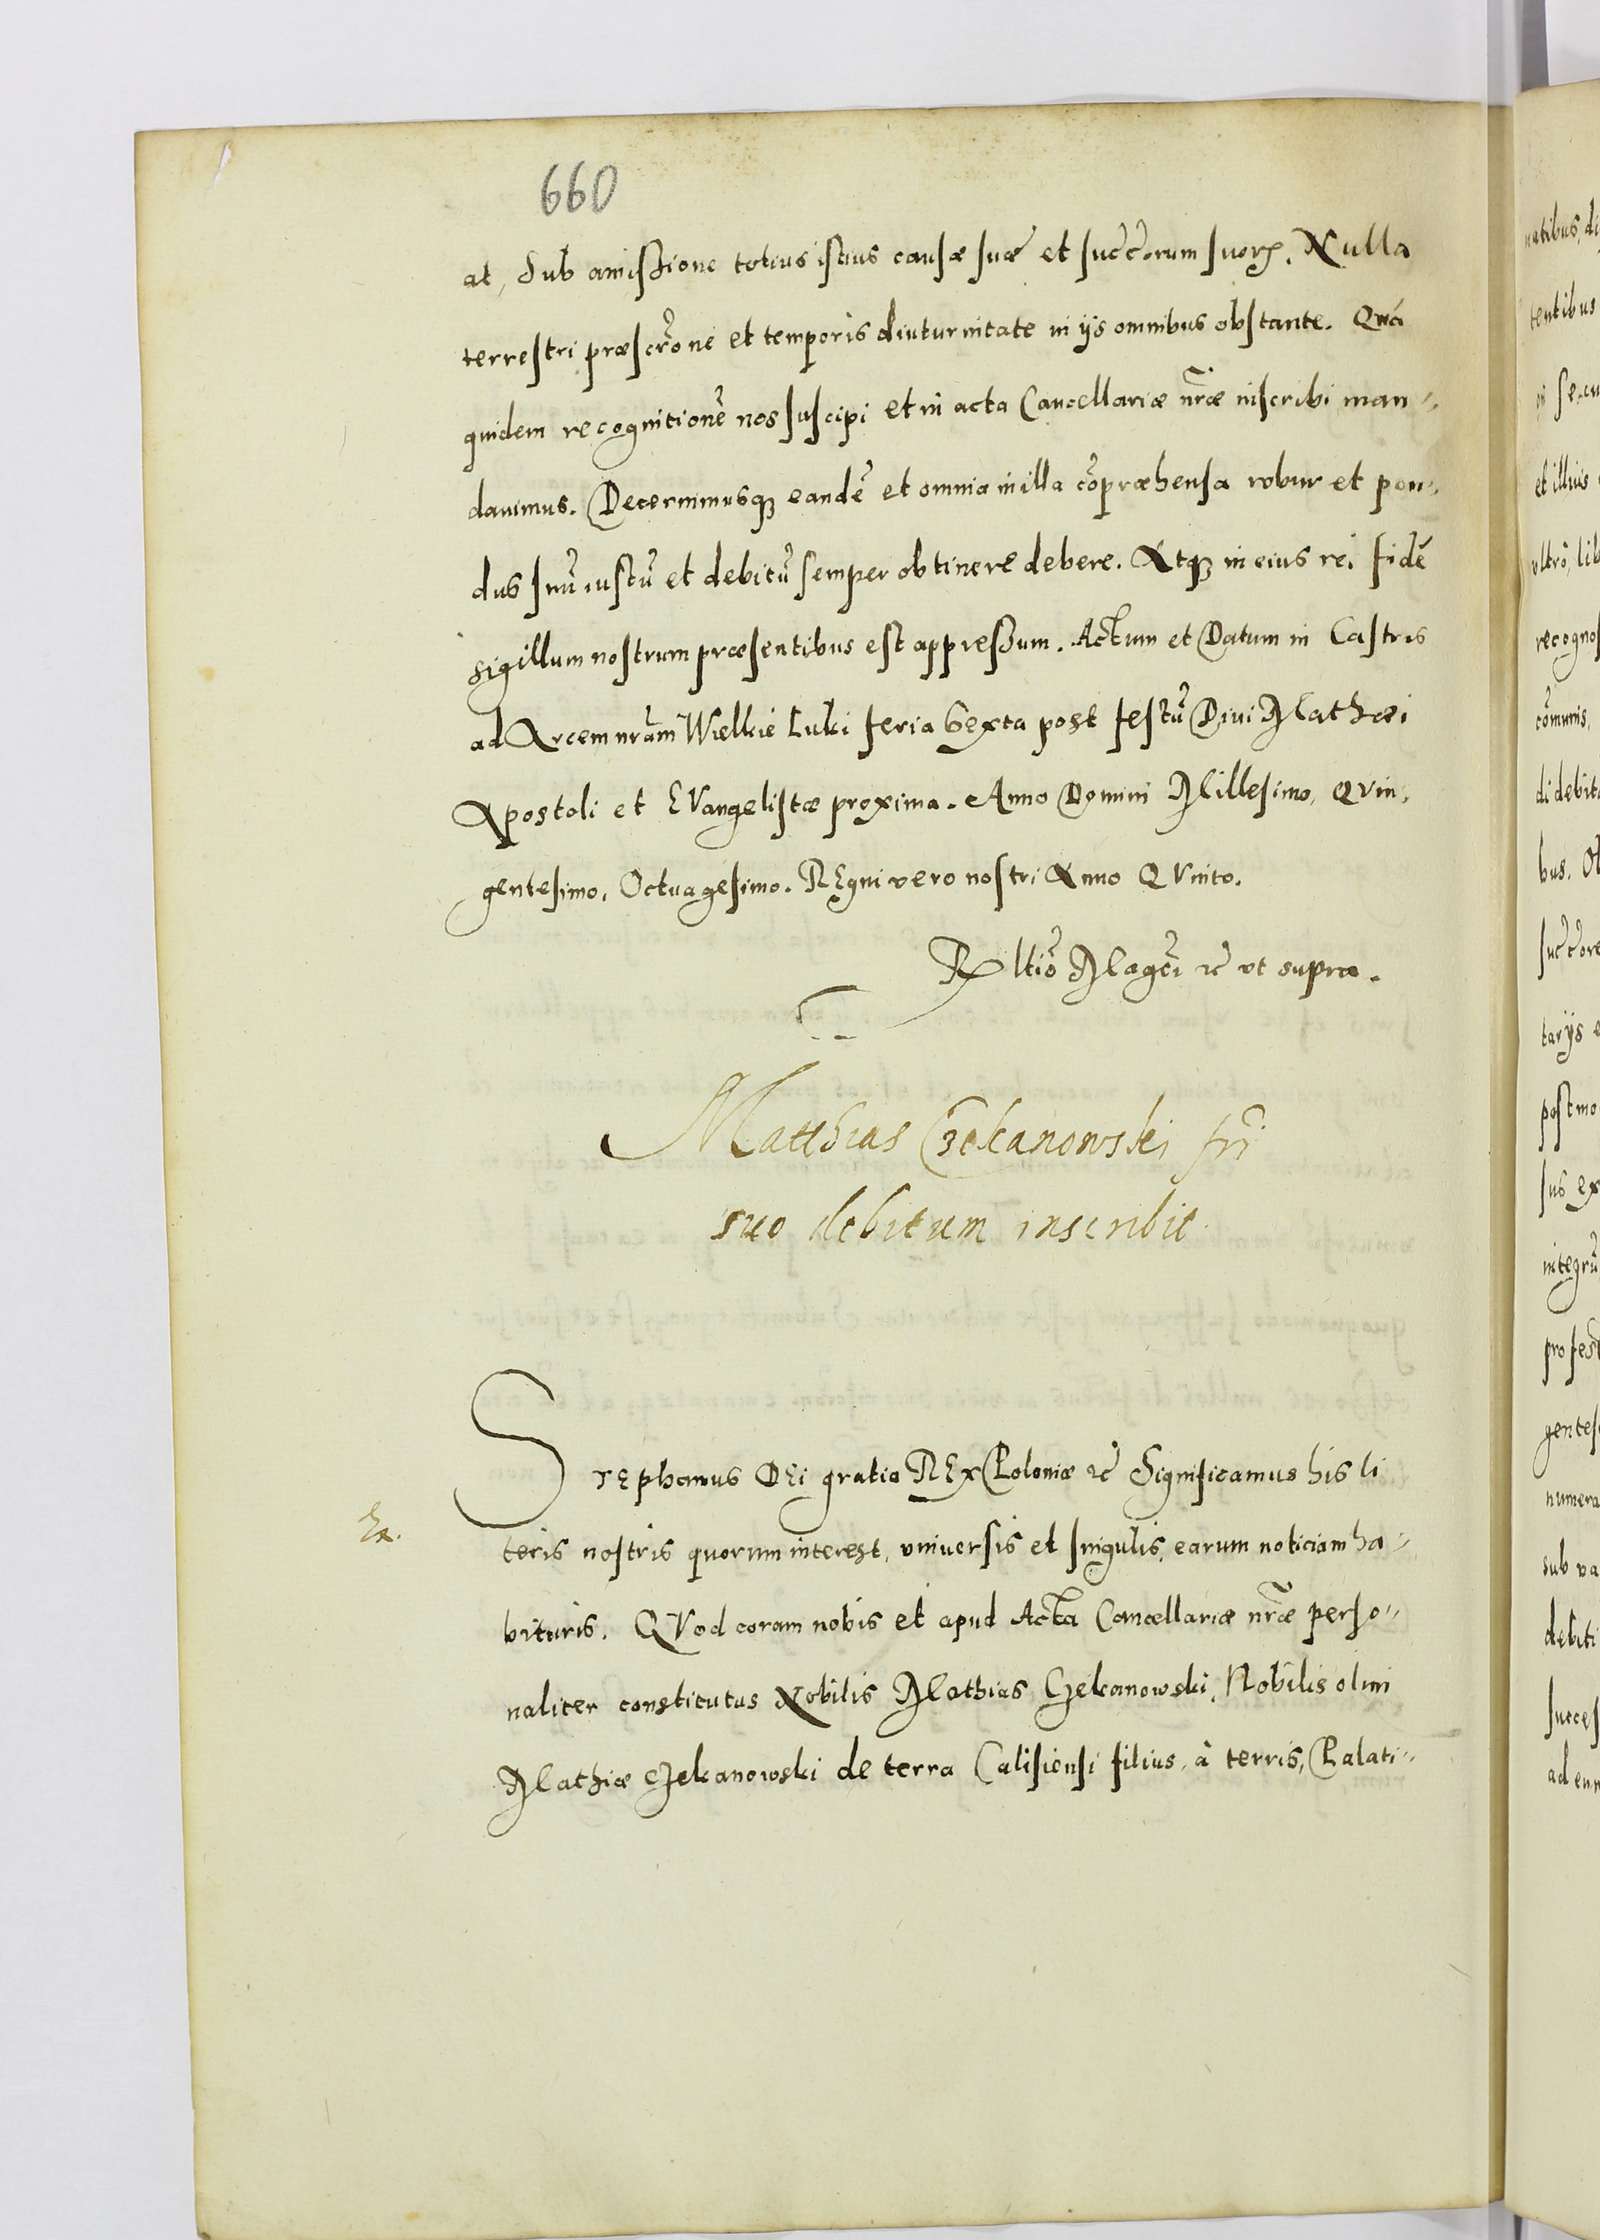 660
at, Sub amissione totius istius causæ suæ et succ̃orum suorꝝ. Nulla
terrestri præscr̃one et temporis diuturnitate in ijs omnibus obstante. Quã
quidem recognitionẽ nos suscipi et in acta Cancellariæ nr̃æ inscribi man-
dauimus. Decernimusqꝫ eandẽ et omnia in illa cõpræhensa robur et pon-
dus suũ iustũ et debitũ semper obtinere debere. Atqꝫ in eius rei fidẽ
sigillum nostrum præsentibus est appressum. Actum et Datum in Castris
ad Arcem nr̃am Wielkie Luki feria Sexta post festũ Diui Mathæi
Apostoli et EVangelistæ proxima. Anno Domini Millesimo, QVin-
gentesimo, Octuagesimo. REgni vero nostri Anno QVinto.
Rltio Magci ꝛc vt supra.
Matthias Czekanowski fri
suo debitum inscribit.
STephanus DEi gratia REx Poloniæ ꝛc Significamus his li
teris nostris quorum interest, vniuersis et singulis, earum noticiam ha-
bituris. QVod coram nobis et apud Acta Cancellariæ nr̃æ perso-
naliter constitutus Nobilis Mathias Czekanowski, Nobilis olim
Mathiæ Czekanowski de terra Calisiensi filius, à terris, Palati-
natibus, di
tentibus
et illius
vltrò, lib
recognos
cõmunis,
di debito
bus. Ob
succ̃ore
tarijs e
postmo
sus ex
integrũ
pro fest
gentesi
numera
sub va
debiti
succes
ad eun